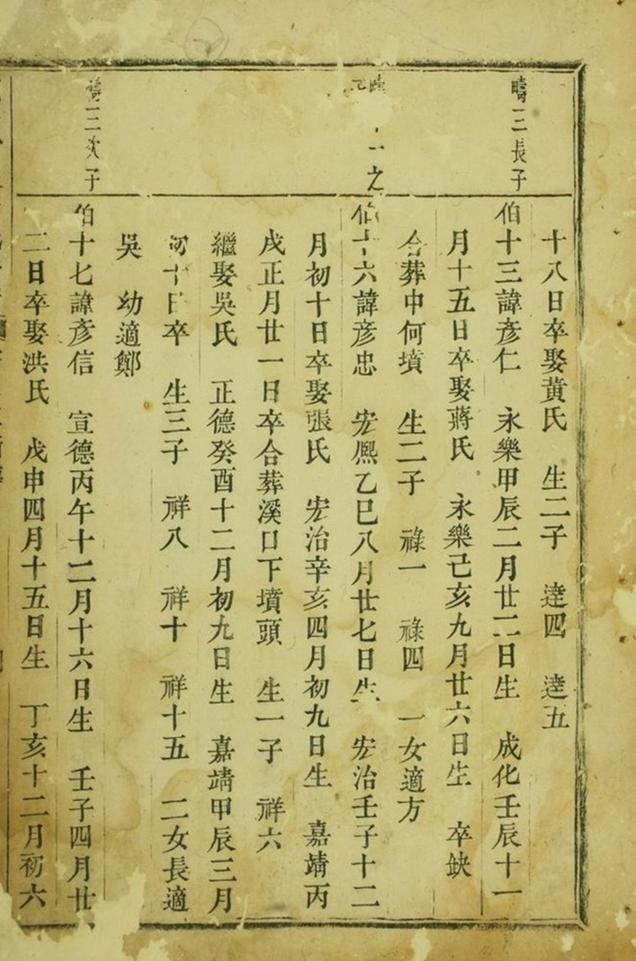 十八日卒娶黃氏 生二子 達四 達五
疇三長子
伯十三諱彥仁 永樂甲辰二月廿二日生 成化壬辰十一
月十五日卒娶蔣氏 永樂己亥九月廿六日生 卒缺
合葬中何墳 生二子 祿一 祿四 一女適方
之
伯十六諱彥忠 宏熈乙巳八月廿七日生 宏治壬子十二
月初十日卒娶張氏 宏治辛亥四月初九日生 嘉靖丙
戌正月廿一日卒合葬溪口下墳頭 生一子 祥六
繼娶吳氏 正德癸酉十二月初九日生 嘉靖甲辰三月
初十日卒 生三子 祥八 祥十 祥十五 二女長適
吳 幼適鄭
疇三次子
伯十七諱彥信 宣德丙午十二月十六日生 壬子四月廿
二日卒娶洪氏 戊申四月十五日生 丁亥十二月初六